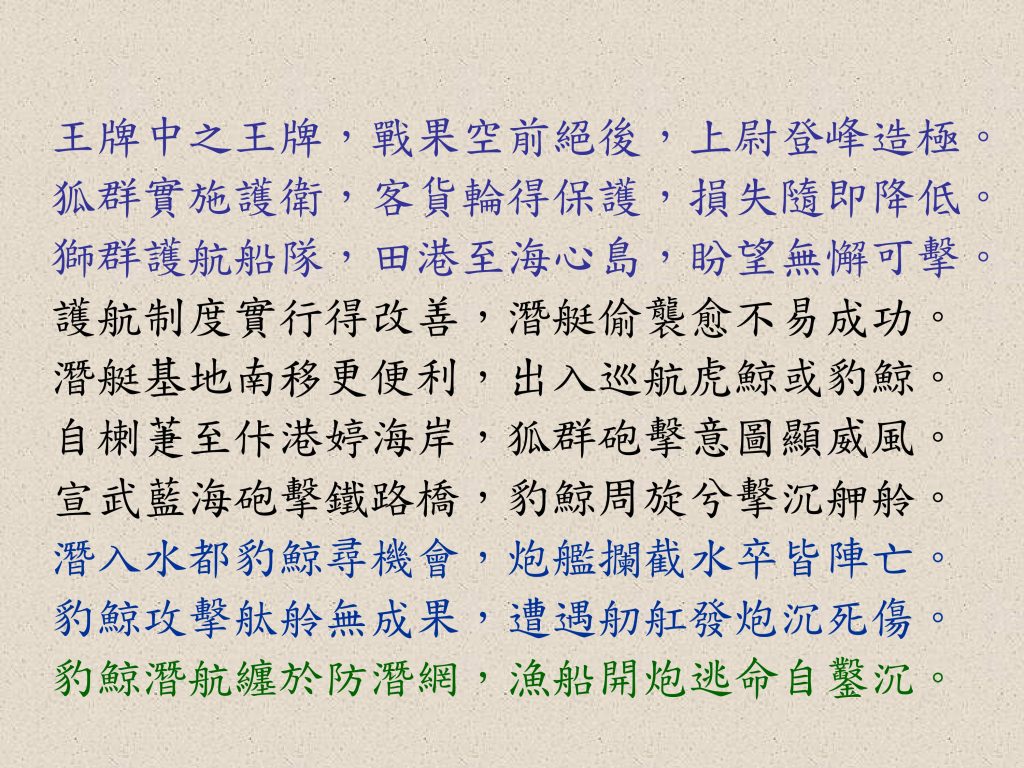 王牌中之王牌，戰果空前絕後，上尉登峰造極。
狐群實施護衛，客貨輪得保護，損失隨即降低。
獅群護航船隊，田港至海心島，盼望無懈可擊。
護航制度實行得改善，潛艇偷襲愈不易成功。
潛艇基地南移更便利，出入巡航虎鯨或豹鯨。
自樹萐至佧港婷海岸，狐群砲擊意圖顯威風。
宣武藍海砲擊鐵路橋，豹鯨周旋兮擊沉舺舲。
潛入水都豹鯨尋機會，炮艦攔截水卒皆陣亡。
豹鯨攻擊舦舲無成果，遭遇舠舡發炮沉死傷。
豹鯨潛航纏於防潛網，漁船開炮逃命自鑿沉。